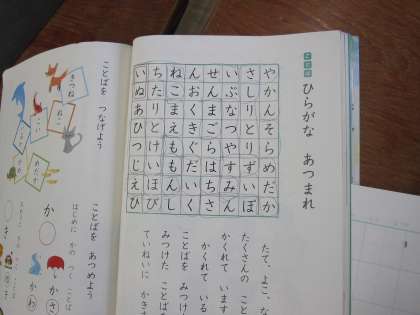 ことば
ひらがな あつまれ
やかんそらめだか
さしりとりずいぼ
いぶなつやすみん
せんまごらはちさ
んおくきぐだいく
ねこまえももんし
ちたりとけいほび
いぬあひつじえひ
たて、よこ、な
たくさんの こと
かくれて います
かくれて いる
ことばを みつけ
みつけた ことば
ていねいに かき
ことばを つなげよう
きつね
ねこ
こい
ことばを あつめよう
はじめに かの つく ことば
か
かさ
かわ